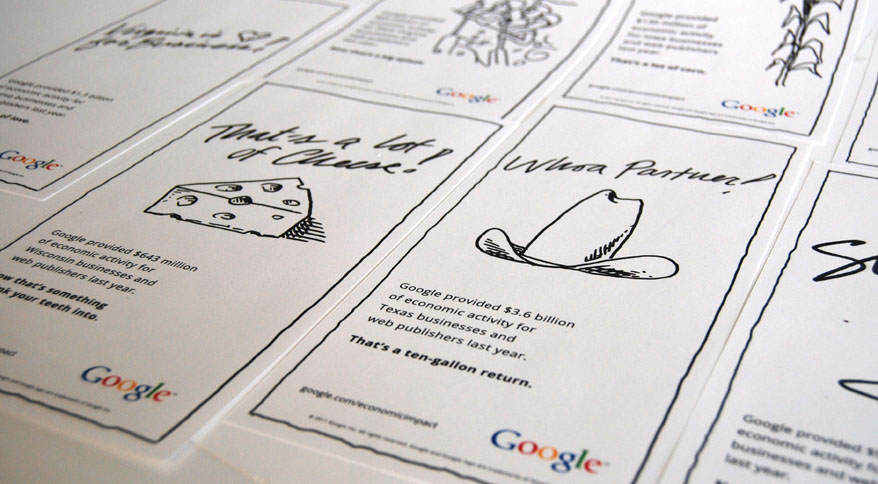 Virginia is
for Business!
Google provided $1.3 billion
of economic activity for
businesses and
publishers last year.
of love.
Google
google.com/economicimpact
Google
Google provided
of economic activity
for Iowa businesses
and web publishers
last year.
That's a lot of corn.
google.com/economicimpact
Google
That's a lot
of Cheese!
Google provided $643 million
of economic activity for
Wisconsin businesses and
web publishers last year.
now that's something
your teeth into.
Google
Whoa Partner!
Google provided $3.6 billion
of economic activity for
Texas businesses and
web publishers last year.
That's a ten-gallon return.
google.com/economicimpact
Google
Google provided
economic activity
businesses and
last year.